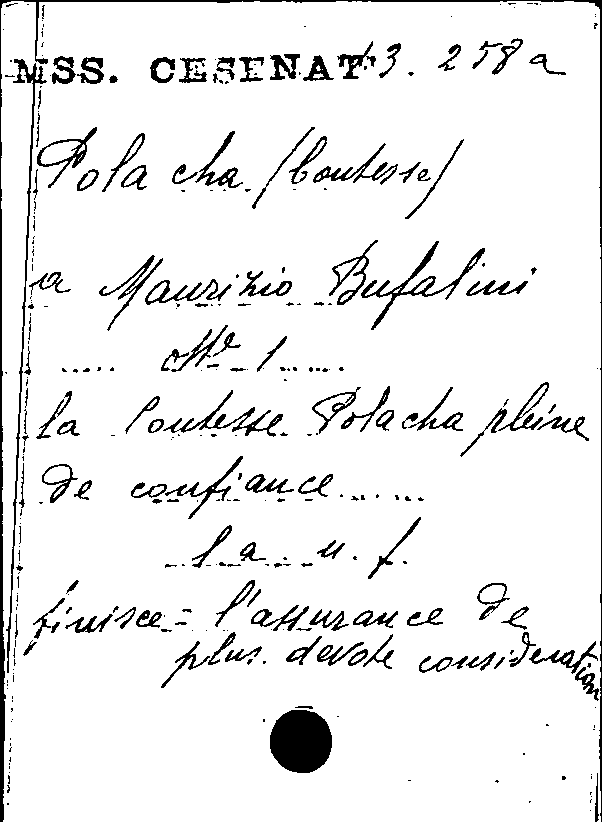 MSS. CESENAT 13. 258 a
Polacha (Contesse)
a Maurizio Bufalini
..... 1 .....
la Contesse Polacha pleine
de confiance ......
l. a. n. f.
finisce = l'assurance de
plus. devote consideration